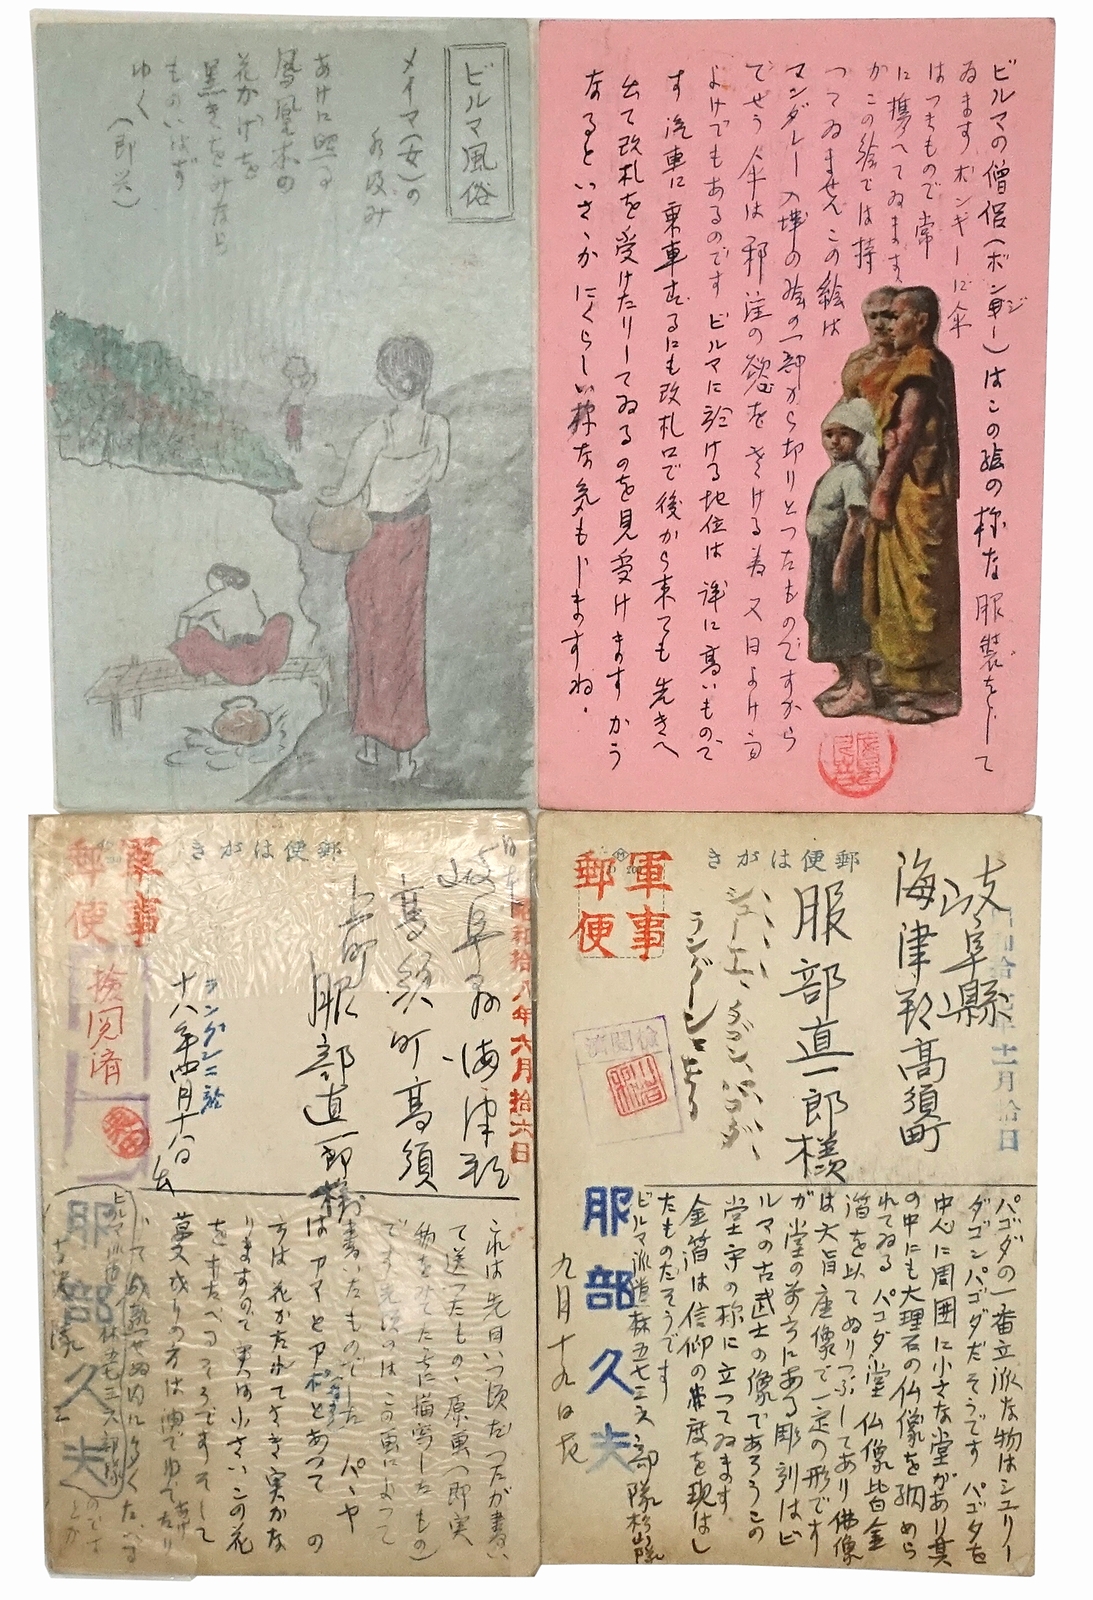 ビルマ風俗
メイマ(女)の
水汲み
あけに照る
鳳凰木の
花かげを
黒きをみなら
ものいはず
ゆく (即興)
ビルマの僧侶(ボンジー)はこの絵の様な服装をして
ゐます ボンギーに傘
はつきもので常
に携へてゐます
がこの絵では持
つてゐません この絵は
マンダレー入城の絵の一部から切りとつたものですから
でせう 傘は邪淫の慾をさける為又日よけ雨
よけでもあるのです ビルマに於ける地位は誠に高いもので
す 汽車に乗車するにも改札口で後から来ても先きへ
出て改札を受けたりしてゐるのを見受けます かう
なるといさゝかにくらしい様な気もしますね.
郵便はがき
軍事
郵便
検閲済
昭和拾八年六月拾六日
岐阜県海津郡
高須町高須
上町
服部直一郎様
ラングンニ於
十八年四月十八日出
これは先日いつ頃だつたか書い
て送つたもの、原画へ即実
物をみてた時に描写したもの)
です 先頃のはこの画によつて
書いたものでした パパヤ
はアマとアポとあつて の
方は花がたれてさき実がな
りますので実は小さいこの花
をすたべるさうです そして
ビルマ派遣林五七三六部隊
服部久夫
郵便はがき
軍事
郵便
検閲済
岐阜縣
海津郡高須町
服部直一郎様
シューエ、ダゴン、パゴダ、
ラングーンニ在る
十一月拾日
パゴダの一番立派な物はシユリー
ダゴンパゴダだそうです パゴダを
中心に周囲に小さな堂があり其
の中にも大理石の仏像を納めら
れてゐる パコダ堂仏像皆金
箔を以てぬりつぶしてあり佛像
は大旨座像で一定の形です
が堂の前方にある彫刻はビ
ルマの古武士の像であらうこの
堂守の様に立つてゐます
金箔は信仰の崇度を現はし
たものだそうです
ビルマ派遣森五七三六部隊杉山隊
服部久夫
九月十九日記